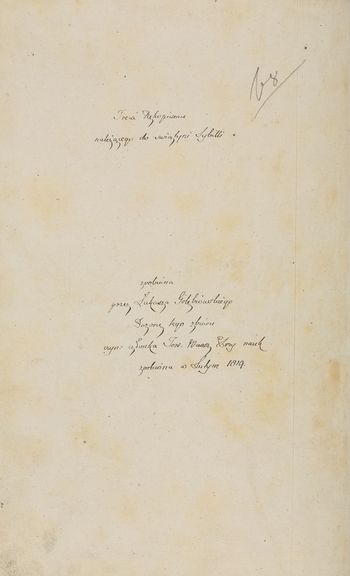 Treść Rękopismu
należącego do świątyni Sybilli
zrobiona
przez Łukasza Gołębiowskiego
Dozorcę tego zbioru
członka Tow. Warsz. nauk
zrobiona w Lutym 1819.